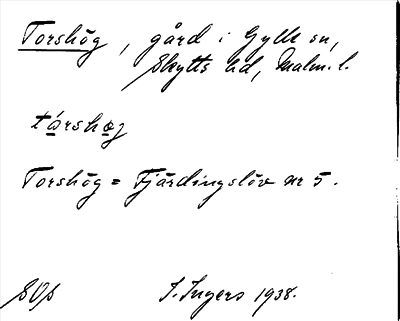 Torshög, gård i Gylle sn,
Skytts hd, Malm. l.
társhøg
Torshög = Fjärdingslöv nr 5.
SOs I. Ingers 1938.